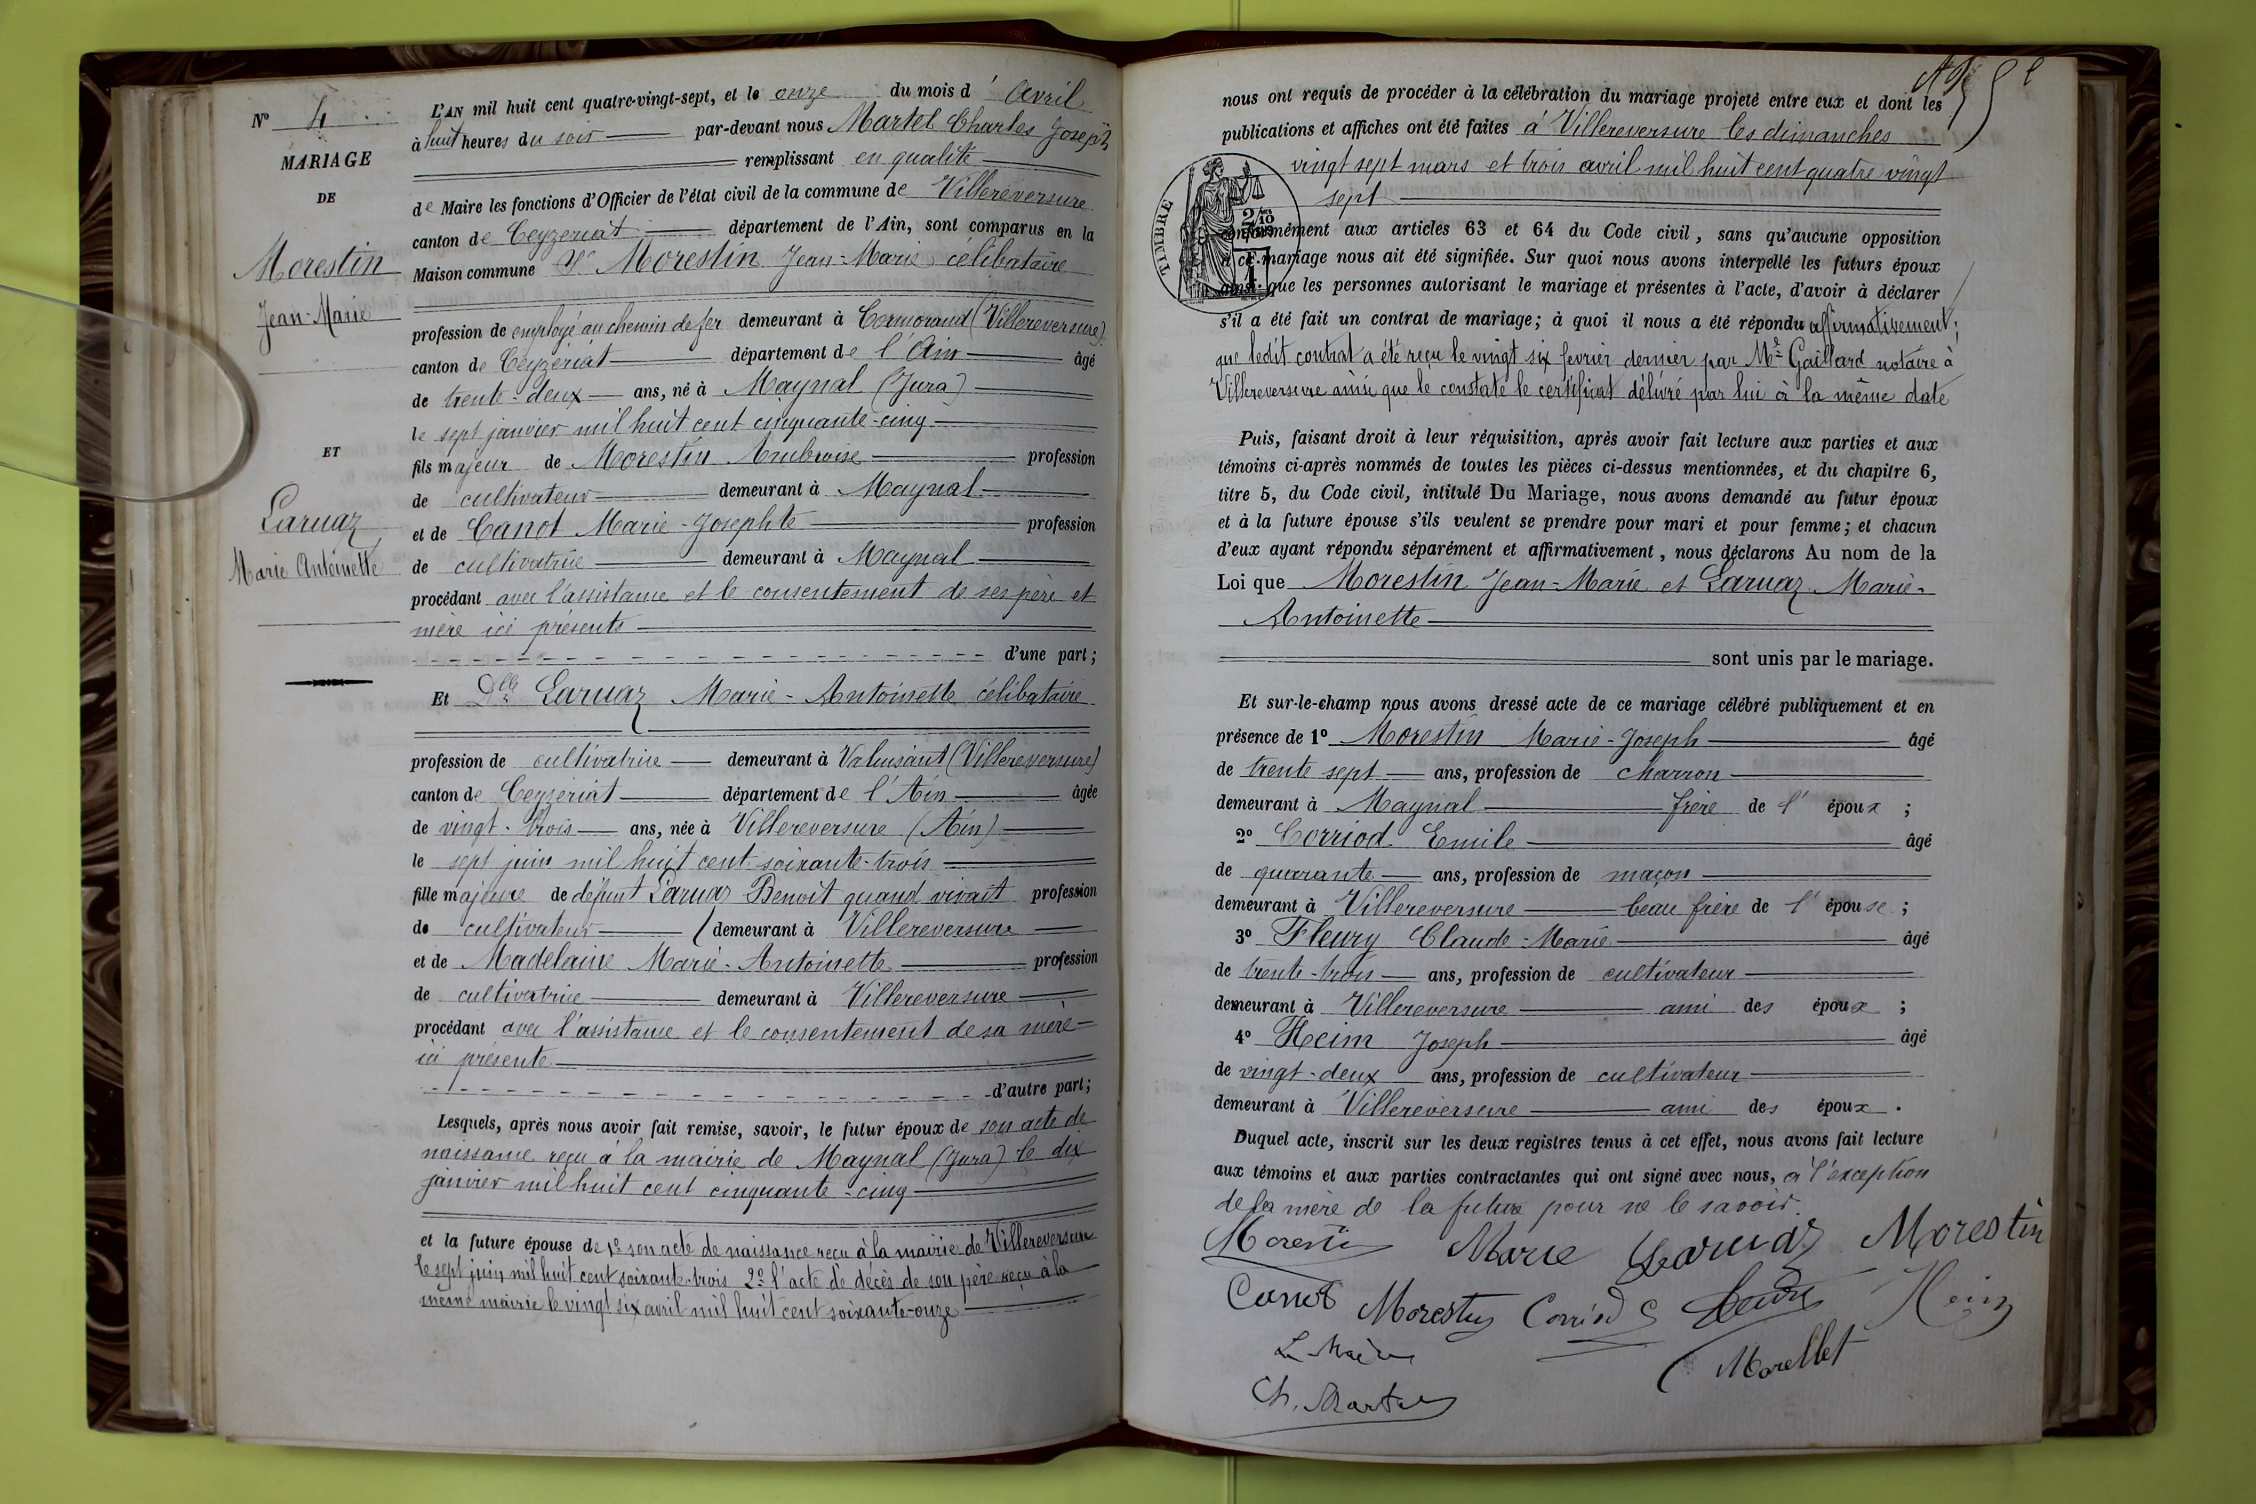 N° 4
MARIAGE
DE
Morestin
Jean-Marie
ET
Laruaz
Marie Antoinette
L'AN mil huit cent quatre-vingt-sept, et le onze du mois d' Avril
à huit heures du soir par-devant nous Martel Charles Joseph
remplissant en qualité
de Maire les fonctions d'Officier de l'état civil de la commune de Villereversure
canton de Ceyzeriat département de l'Ain, sont comparus en la
Maison commune Sr Morestin Jean-Marie célibataire
profession de employé au chemin de fer demeurant à Cormorand (Villereversure)
canton de Ceyzériat département de l'Ain âgé
de trente-deux ans, né à Maynal (Jura)
le sept janvier mil huit cent cinquante-cinq
fils majeur de Morestin Ambroise profession
de cultivateur demeurant à Maynal
et de Canot Marie-Josephte profession
de cultivatrice demeurant à Maynal
procédant avec l'assistance et le consentement de ses père et
mère ici présents
d'une part;
Et Dlle Laruaz Marie-Antoinette célibataire
profession de cultivatrice demeurant à Valuisant (Villereversure)
canton de Ceyzeriat département de l'Ain âgée
de vingt-trois ans, née à Villereversure (Ain)
le sept juin mil huit cent soixante-trois
fille majeure de défunt Laruaz Benoit quand vivait profession
de cultivateur demeurant à Villereversure
et de Madelaine Marie-Antoinette profession
de cultivatrice demeurant à Villereversure
procédant avec l'assistance et le consentement de sa mère
ici présente
d'autre part;
Lesquels, après nous avoir fait remise, savoir, le futur époux de son acte de
naissance reçu à la mairie de Maynal (Jura) le dix
janvier mil huit cent cinquante-cinq
et la future épouse de 1° son acte de naissance reçu à la mairie de Villereversure
le sept juin mil huit cent soixante-trois 2° l'acte de décès de son père reçu à la
même mairie le vingt six avril mil huit cent soixante-onze
nous ont requis de procéder à la célébration du mariage projeté entre eux et dont les
publications et affiches ont été faites à Villereversure les dimanches
vingt sept mars et trois avril mil huit cent quatre vingt
sept
TIMBRE
2/10
conformément aux articles 63 et 64 du Code civil, sans qu'aucune opposition
à ce mariage nous ait été signifiée. Sur quoi nous avons interpellé les futurs époux
ainsi que les personnes autorisant le mariage et présentes à l'acte, d'avoir à déclarer
s'il a été fait un contrat de mariage; à quoi il nous a été répondu affirmativement;
que ledit contrat a été reçu le vingt six fevrier dernier par Me Gaillard notaire à
Villereversure ainsi que le constate le certificat délivré par lui à la même date
Puis, faisant droit à leur réquisition, après avoir fait lecture aux parties et aux
témoins ci-après nommés de toutes les pièces ci-dessus mentionnées, et du chapitre 6,
titre 5, du Code civil, intitulé Du Mariage, nous avons demandé au futur époux
et à la future épouse s'ils veulent se prendre pour mari et pour femme; et chacun
d'eux ayant répondu séparément et affirmativement, nous déclarons Au nom de la
Loi que Morestin Jean-Marie et Laruaz Marie-
Antoinette
sont unis par le mariage.
Et sur-le-champ nous avons dressé acte de ce mariage célébré publiquement et en
présence de 1° Morestin Marie-Joseph âgé
de trente sept ans, profession de charron
demeurant à Maynal frère de l' époux ;
2° Corriod Emile âgé
de quarante ans, profession de maçon
demeurant à Villereversure beau frère de l' épouse ;
3° Fleury Claude-Marie âgé
de trente-trois ans, profession de cultivateur
demeurant à Villereversure ami des époux ;
4° Heim Joseph âgé
de vingt-deux ans, profession de cultivateur
demeurant à Villereversure ami des époux .
Duquel acte, inscrit sur les deux registres tenus à cet effet, nous avons fait lecture
aux témoins et aux parties contractantes qui ont signé avec nous, à l'exception
de la mère de la future pour ne le savoir.
Morestin Marie Laruaz Morestin
Canot Morestin Corriod Fleury Heim
Le Maire Morellet
Ch. Martel